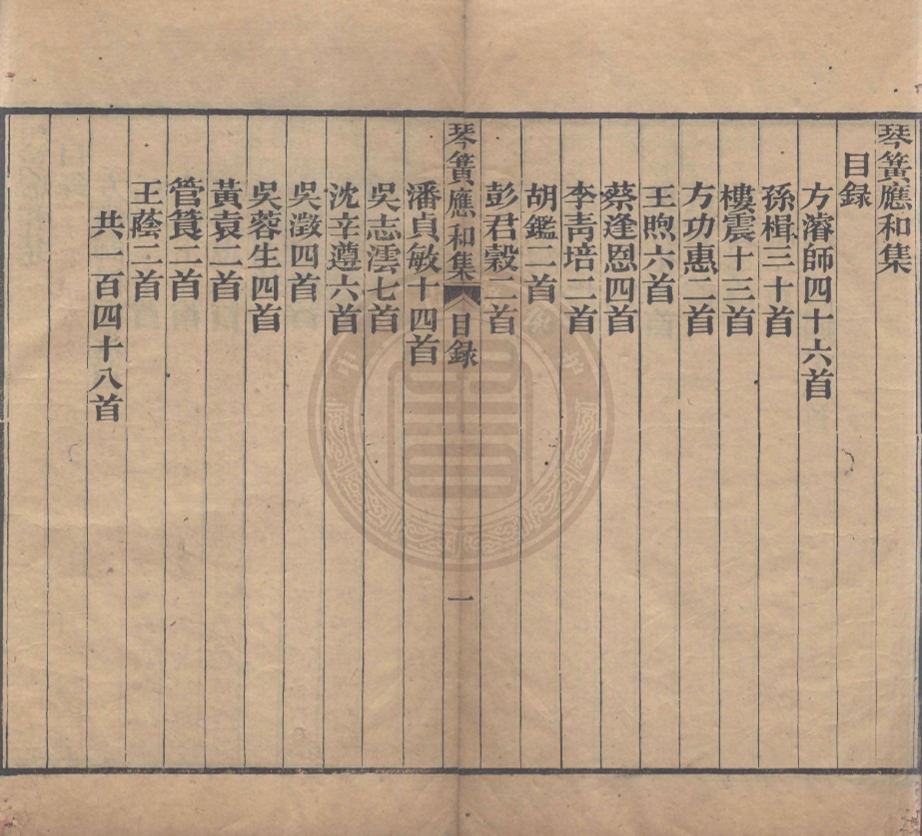 琴簧應和集
目録
方濬師四十六首
孫楫三十首
樓震十三首
方功惠二首
王煦六首
蔡逢恩四首
李青培二首
胡鑑二首
彭君穀二首
琴簧應和集 目録 一
潘貞敏十四首
吳志澐七首
沈辛遵六首
吳澂四首
吳蓉生四首
黃袁二首
管貫二首
王蔭二首
共一百四十八首